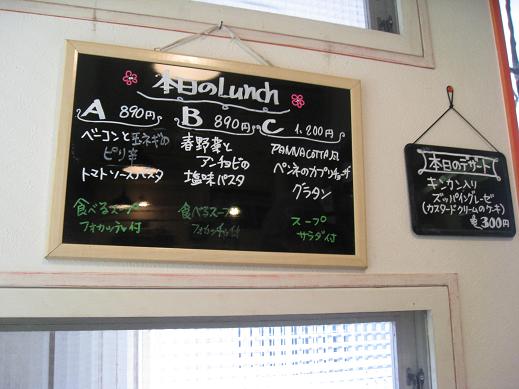 本日のLunch
A 890円
ベーコンと玉ネギの
ピリ辛
トマトソースパスタ
食べるスープ
フォカッチャ付
B 890円
春野菜と
アンチョビの
塩味パスタ
食べるスープ
フォカッチャ付
C 1,200円
PANNACOTTA風
ペンネのカプリチョーザ
グラタン
スープ
サラダ付
本日のデザート
キンカン入り
ズッパイングレーゼ
(カスタードクリームのケーキ)
300円